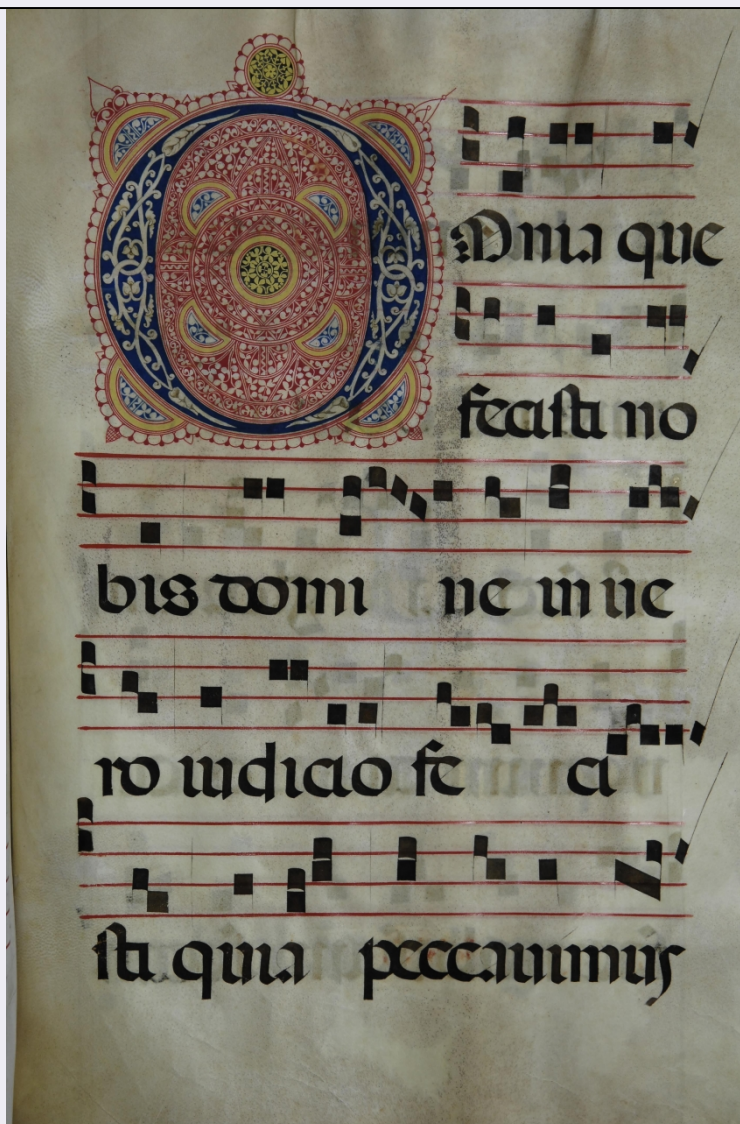 OMnia que
fecisti no
bis domi ne in ve
ro iudicio fe ci
sti quia peccauimus